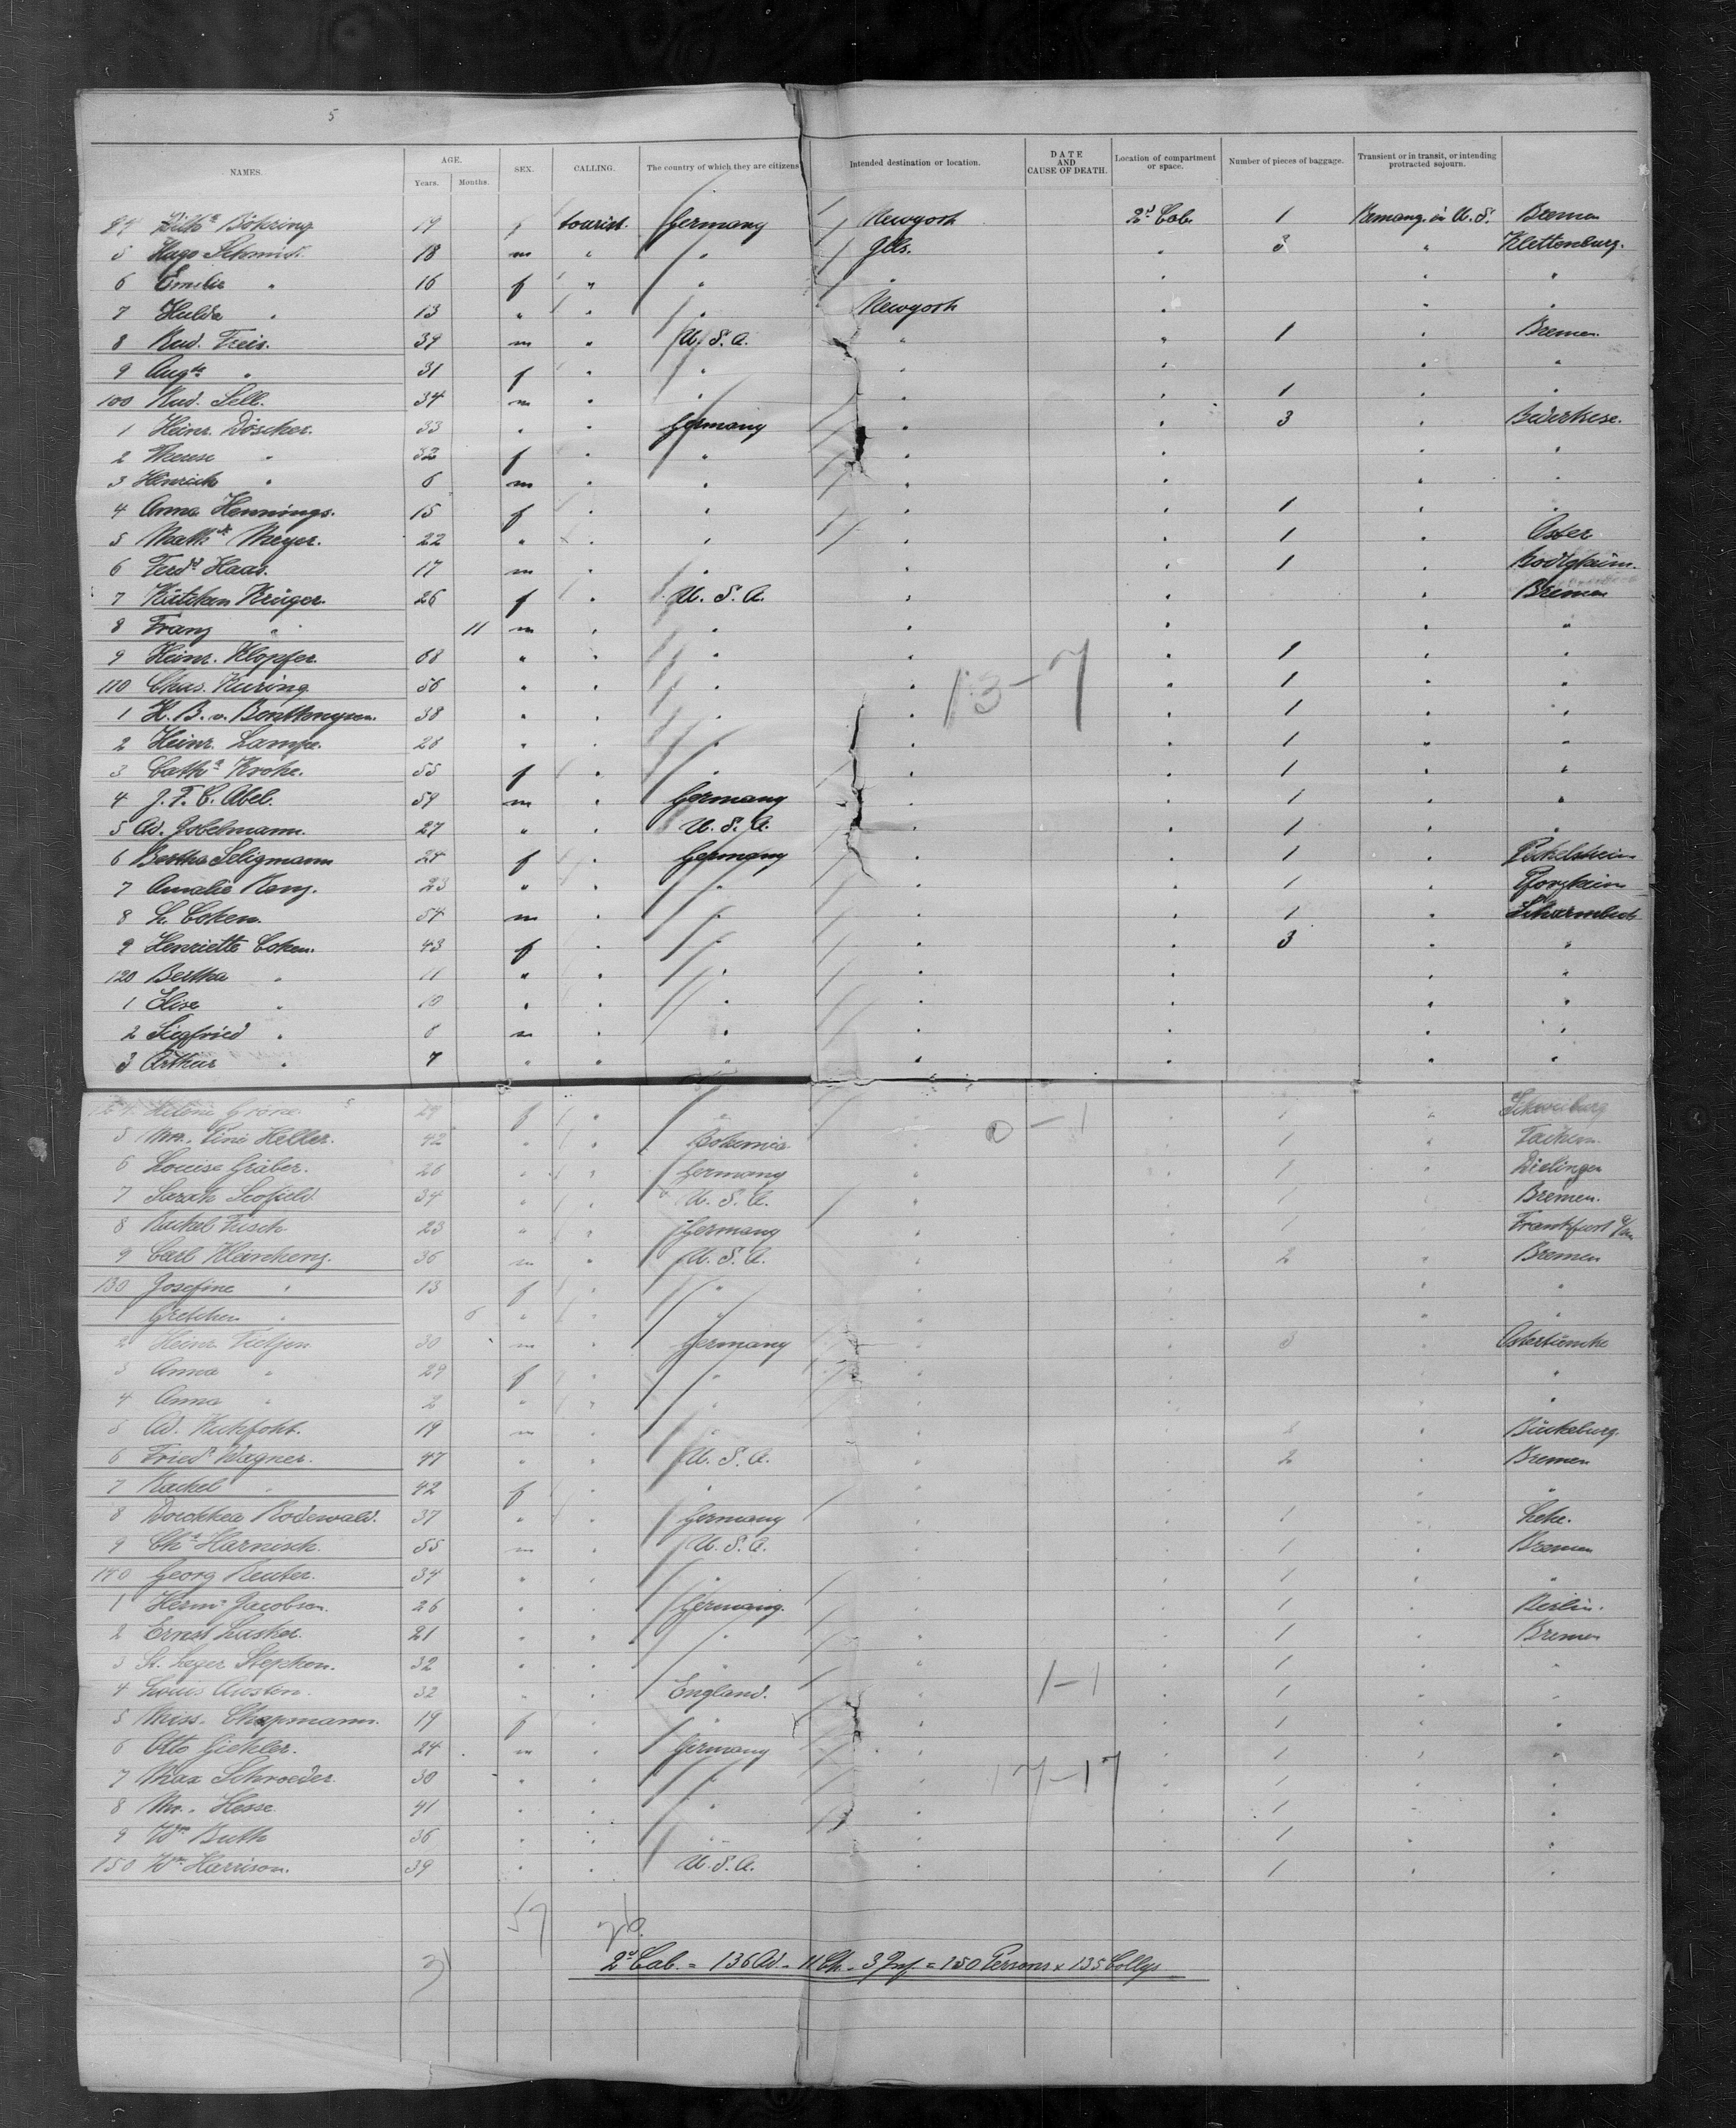 5
NAMES. AGE. Years. Months. SEX. CALLING. The country of which they are citizens Intended destination or location. DATE AND CAUSE OF DEATH. Location of compartment or space. Number of pieces of baggage. Transient or in transit, or intending protracted sojourn.
94 Böhring 19 f tourist. Germany Newyork 2d Cab. 1 in U. S. Bremen
5 Hugo Schmidt 18 m " " Ills. " 3 " Klettenburg.
6 Emilie " 16 f " " " " " "
7 Hulda " 13 " " " Newyork " " "
8 Rud. Freis. 39 m " U. S. A. " " 1 " Bremen.
9 Augte " 31 f " " " " " "
100 Rud. Sell. 34 m " " " " 1 " "
1 Heinr. Döscher. 33 " " Germany " " 3 " Bederkesa.
2 " 32 f " " " " " "
3 Hinrich " 6 m " " " " " "
4 Anna Hennings. 15 f " " " " 1 " "
5 Mathde Meyer. 22 " " " " " 1 " Oster
6 Ferdd Haas. 17 m " " " " 1 "
7 Kätchen Krüger. 26 f " U. S. A. " " " Bremen
8 Franz " 11 m " " " " " "
9 Heinr. Klopfer 68 " " " " " 1 " "
110 Chas. Kuring 56 " " " " " 1 " "
13-7
1 H. B. v. 38 " " " " " 1 " "
2 Heinr. Lampe. 28 " " " " " 1 " "
3 Catha Krohe. 55 f " " " " 1 " "
4 J. F. C. Abel. 59 m " Germany " " 1 " "
5 Ad. Gobelmann. 27 " " U. S. A. " " 1 " "
6 Bertha Seligmann 24 f " Germany " " 1 "
7 Amalie 23 " " " " " 1 " Pforzheim
8 L. Cohen. 54 m " " " " 1 "
9 Henriette Cohen. 43 f " " " " 3 " "
120 Bertha " 11 " " " " " " "
1 Elise " 10 " " " " " " "
2 Siegfried " 8 m " " " " " "
3 Arthur " 7 " " " " " " "
124 Helene 29 f " " " 1 "
0-1
5 Mrs. Heller. 42 " " Bohemia " 1 "
6 Louise Gräber. 26 " " Germany " 1 " Dielingen
7 Sarah Scofield 34 " " U. S. A. " 1 Bremen.
8 Rachel 23 " " Germany " 1 Frankfurt a/m
9 Carl 36 m " U. S. A. " 2 " Bremen
130 Josefine " 13 f " " " " "
1 Gretchen " 6 " " " " " "
2 Heinr. 30 m " Germany " 3
3 Anna " 29 f " " " "
4 Anna " 2 " " " " "
5 Ad. 19 m " " " Bückeburg.
6 Friedr Wagner. 47 " " U. S. A. " 2 " Bremen
7 Rachel " 42 f " " " "
8 Dorothea Rodewald. 37 " " Germany " 1 Lehe.
9 Chs Harnisch. 55 m " U. S. A. " 1 Bremen
140 Georg Reuter. 34 " " " " 1 " "
1 Herm. Jacobson. 26 " " Germany. " 1 " Berlin.
2 Ernst Lasker. 21 " " " " 1 Bremen
3 St. Leger Stephen. 32 " " " " 1 " "
1-1
4 Louis Austen. 32 " " England. " 1 "
5 Miss. Chapmann. 19 f " " " 1 " "
6 Otto 24 m " Germany " 1 " "
7 Max Schroeder. 30 " " " " 1 " "
17-17
8 Mr. Hesse 41 " " " " 1 "
9 Wm Buth 36 " " " " 1 " "
150 Wm Harrison. 39 " " U. S. A. " 1 " "
57
2d Cab. = 136 Ad - 11 Ch - 3 Inf. = 150 Persons x 135 Collys